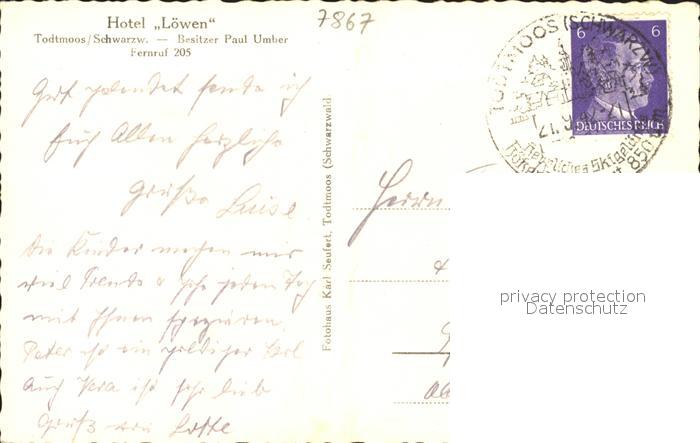 Hotel „Löwen“
Todtmoos/Schwarzw. — Besitzer Paul Umber
Fernruf 205
7867
TODTMOOS (SCHWARZW
21.9.42
6 6
DEUTSCHES REICH
Herrliches Skigelän
850
Gut gelandet sende ich
Euch Allen herzliche
Grüße Luise
Die Kinder machen mir
viel Freude & gehe jeden Tag
mit Ihnen spazieren.
Peter ist ein goldiger Kerl
auch Vera ist sehr lieb
Gruß von Lotte
Fotohaus Karl Seufert, Todtmoos (Schwarzwald
Herrn
&
privacy protection
Datenschutz